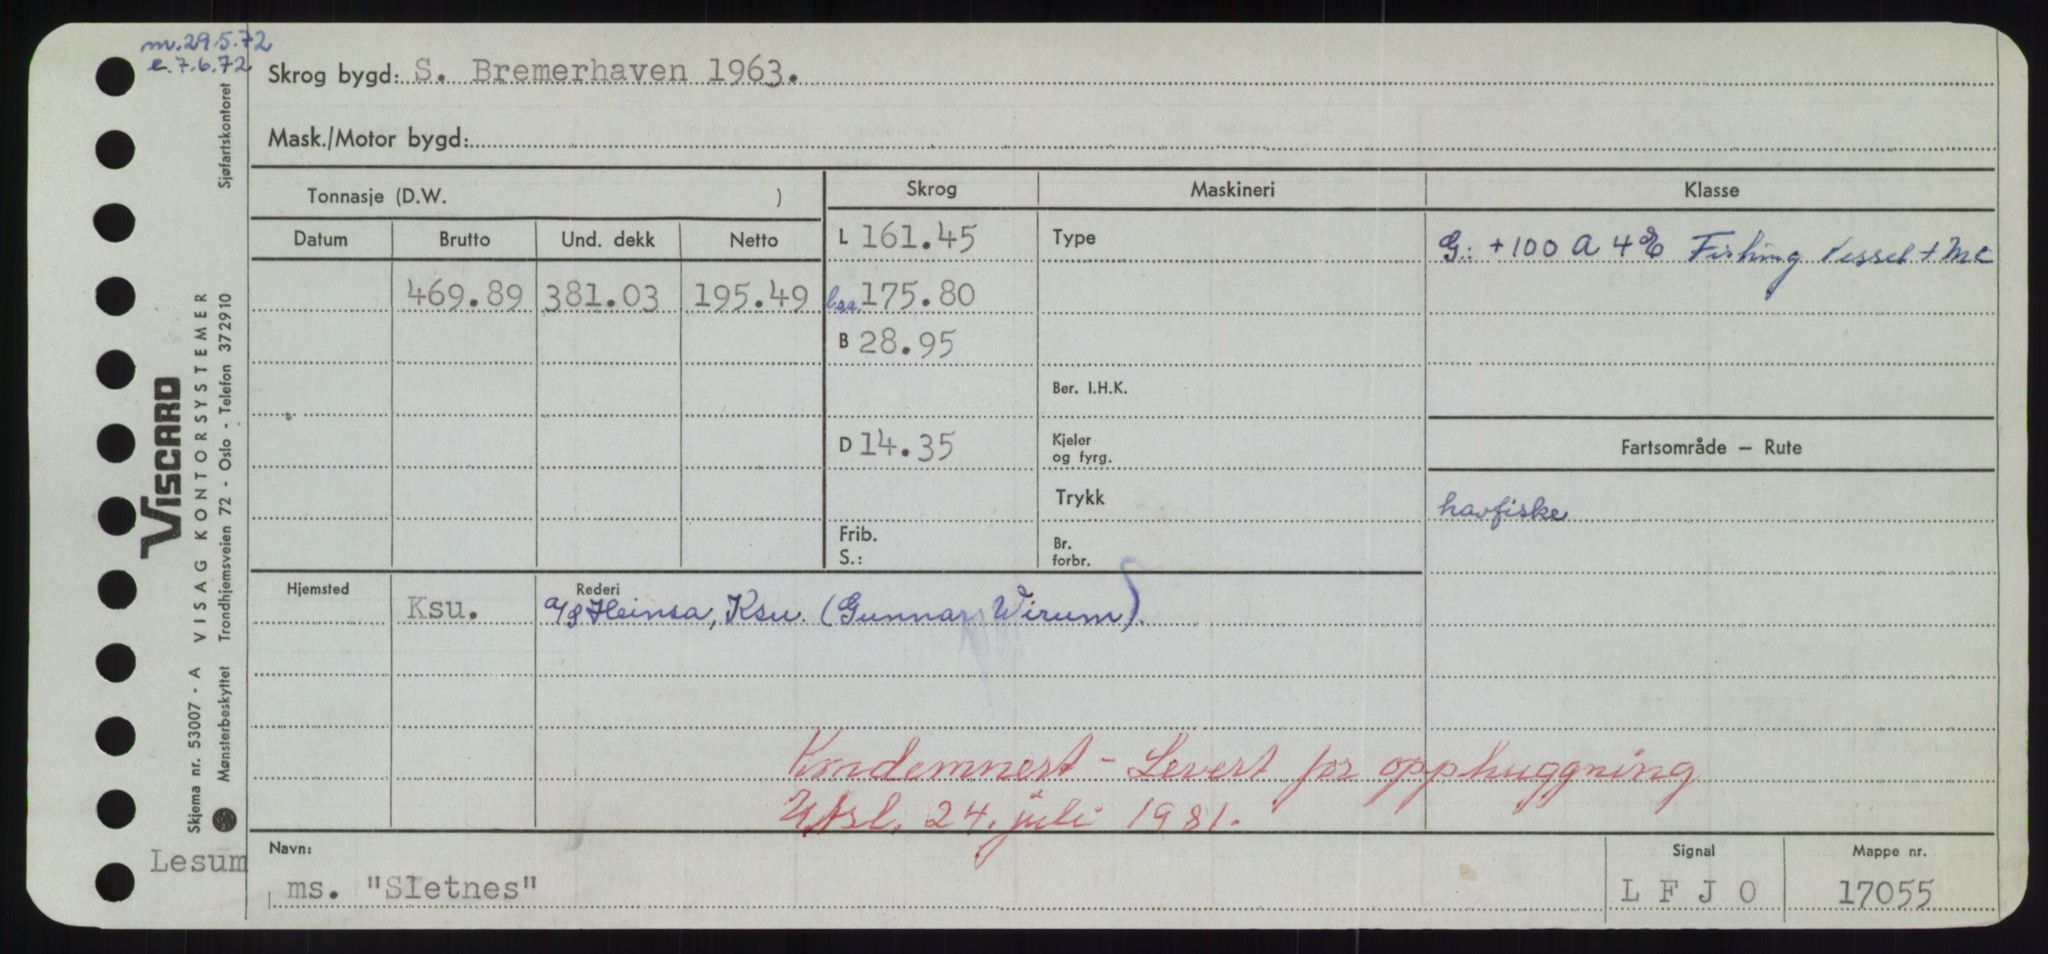 m.29.5.72
e.7.6.72
Skrog bygd: S. Bremerhaven 1963.
Mask./Motor bygd:
Tonnasje (D.W. )
Skrog
Maskineri
Klasse
Datum
Brutto
Und. dekk
Netto
L 161.45
Type
G: +100 A 4 E Fishing Vessel + MC
469.89
381.03
195.49
loa. 175.80
B 28.95
Ber. I.H.K.
D 14.35
Kjeler
og fyrg.
Fartsområde — Rute
Trykk
havfiske
Frib.
S.:
Br.
forbr.
Hjemsted
Rederi
Ksu.
A/S Heinsa, Ksu. (Gunnar Wirum).
Kondemnert - Levert for opphuggning
Utsl. 24. juli 1981.
Navn:
Signal
Mappe nr.
Lesum
ms. "Sletnes"
L F J O
17055
Skjema nr. 53007 - A VISAG KONTORSYSTEMER
Mønsterbeskyttet Trondhjemsveien 72 - Oslo - Telefon 372910
Sjøfartskontoret
VISCARD